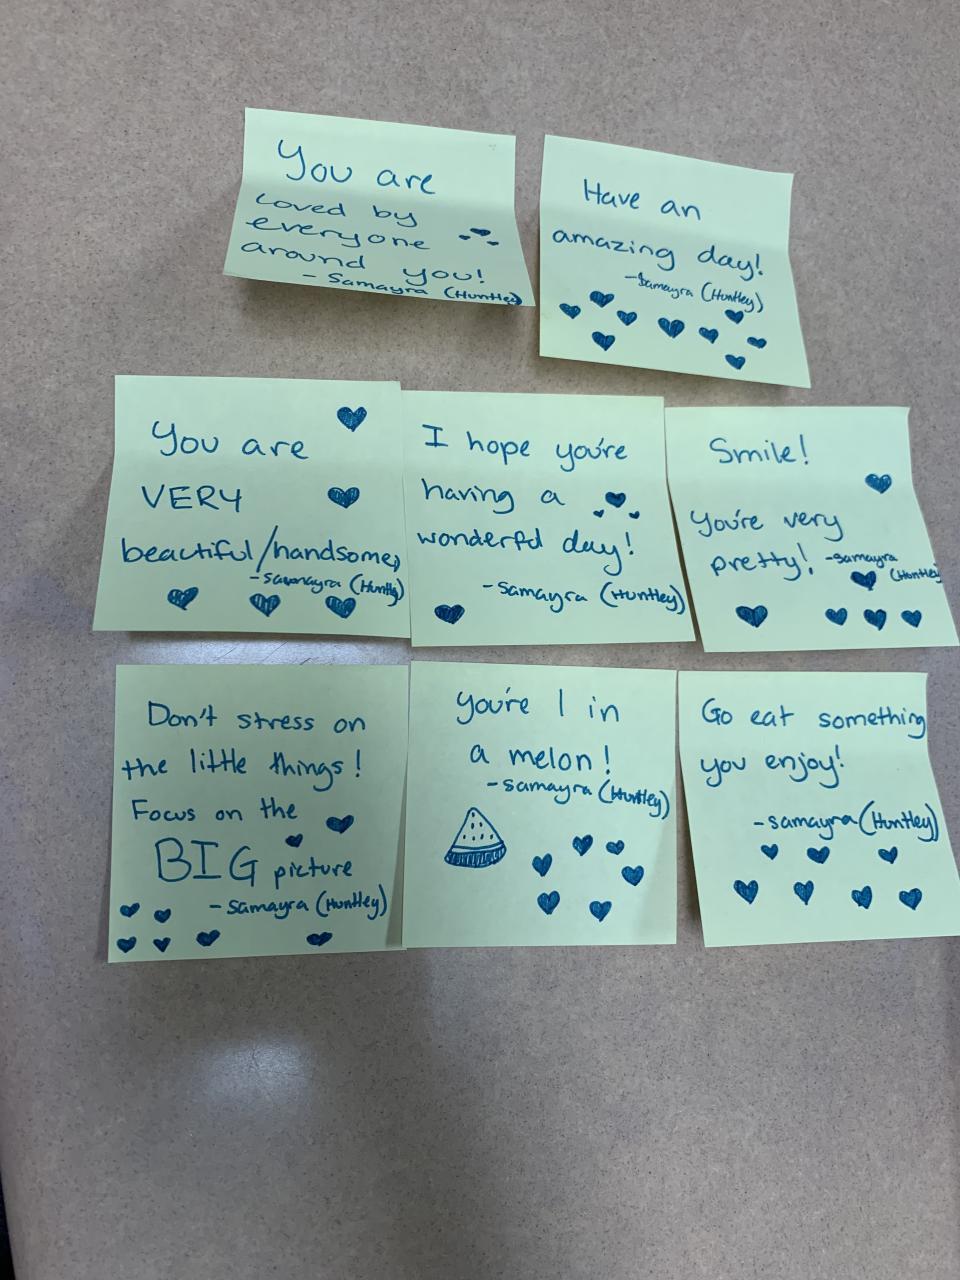 You are
loved by
everyone
around you!
- Samayra (Huntley)
Have an
amazing day!
-Samayra (Huntley)
You are
VERY
beautiful/handsome,
-Samayra (Huntley)
I hope you're
having a
wonderful day!
-Samayra (Huntley)
Smile!
You're very
pretty! -Samayra
(Huntley)
Don't stress on
the little things!
Focus on the
BIG picture
-Samayra (Huntley)
you're 1 in
a melon!
-Samayra (Huntley)
Go eat something
you enjoy!
-Samayra (Huntley)